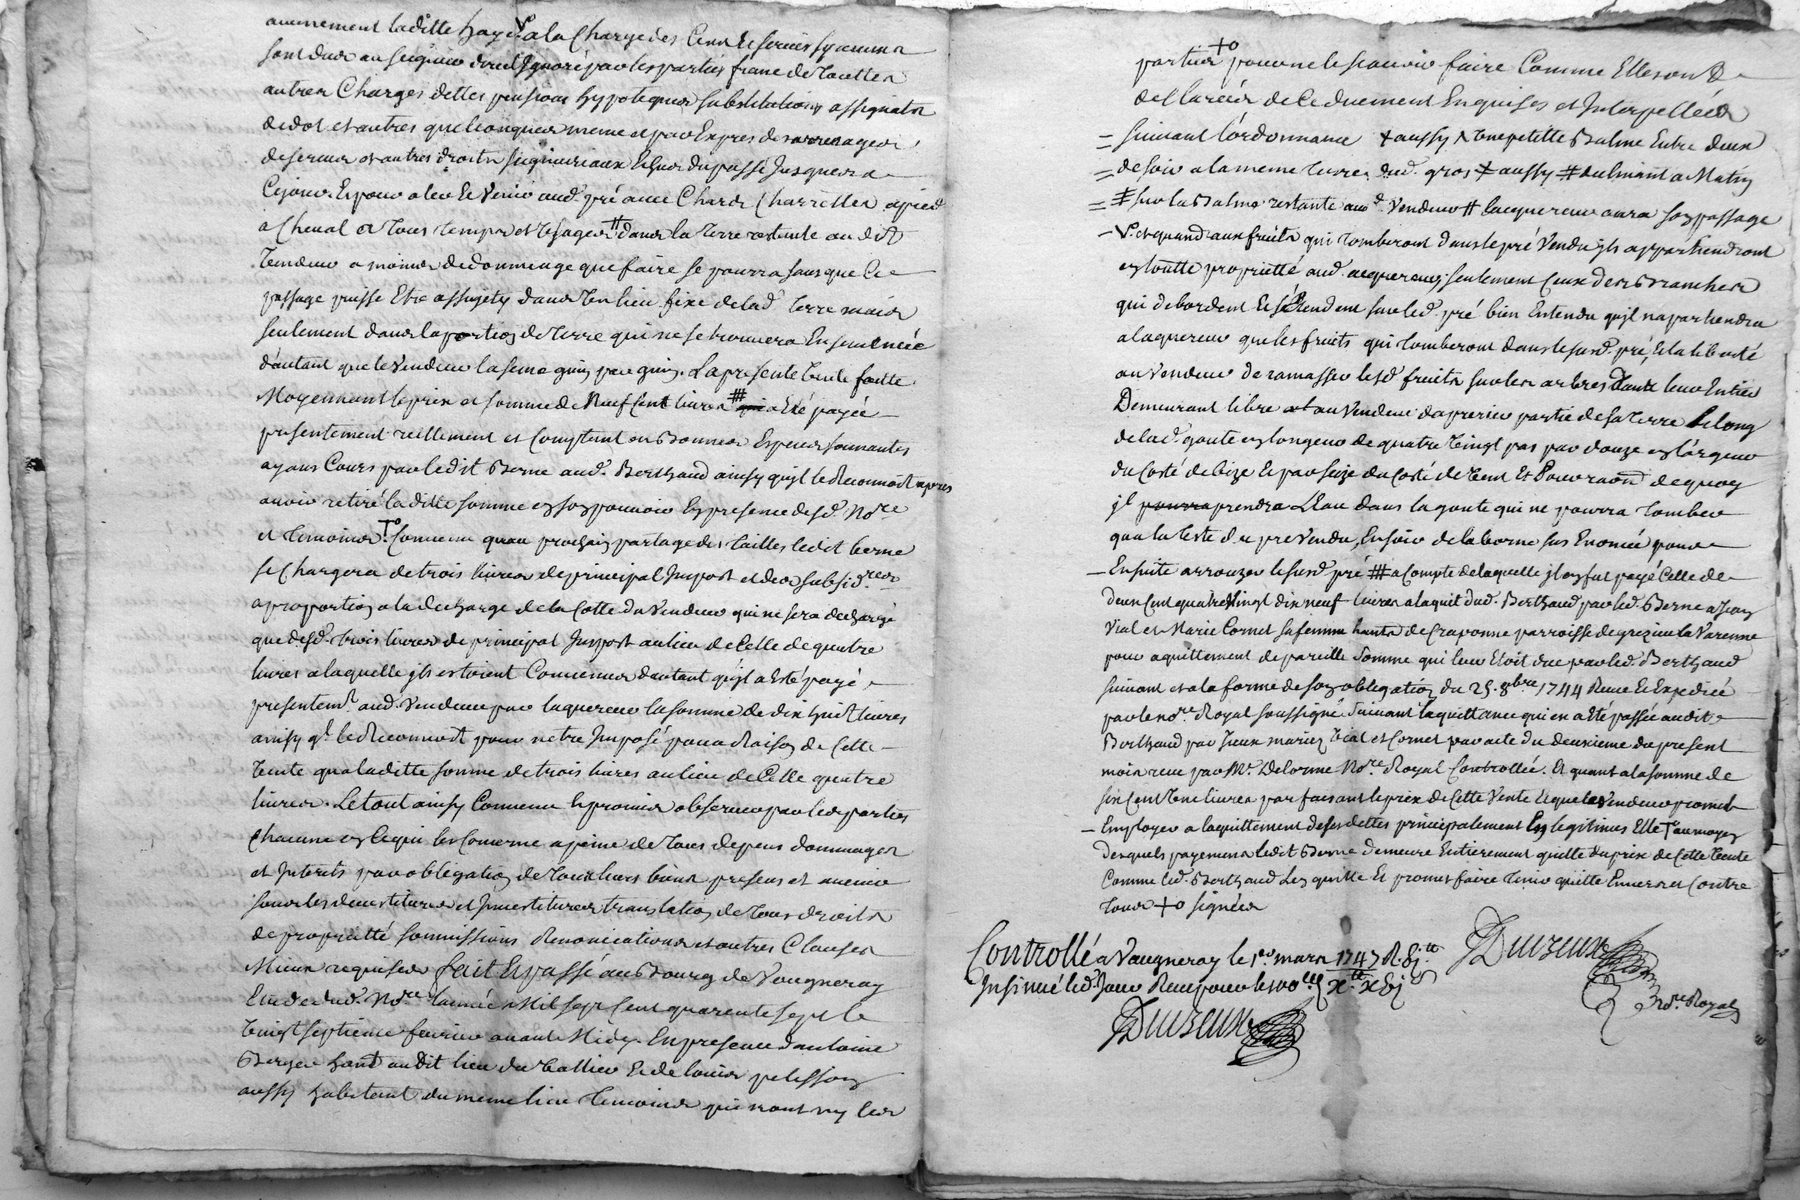 laditte haye V. a la Charge des Cens et servis sy aucuns
sont dus au seigneur direct Ignoré par les parties franc de touttes
autres Charges dettes pensions hypoteques substitutions assignats
de dot et autres quelconques meme et par Expres des arrerages
de servis et autres droits seigneuriaux Echus du passé Jusques a
Ce jour. Et pour aler et Venir aud. pré avec Chars Charrettes a pied
a Cheval et tous temps et usages # dans la terre restante au dit
Vendeur a moins de dommage que faire se pourra sans que le
passage puisse Etre assujety dans un lieu fixe de lad. terre mais
seulement dans la portion de terre qui ne se trouvera Ensemencée
dautant que le Vendeur la seme. La presente Vente faitte
Moyennant le prix et somme de Neuf Cent livres ### a Eté payée
presentement reellement et Comptant en Bonnes Especes sonnantes
ayans Cours par ledit Berne aud. Berthaud ainsy quil le Reconnoit apres
avoir retiré laditte somme en son pouvoir En presence desd. Nore
et temoins. To Convenu quau prochain partage des tailles ledit berne
se Chargera de trois livres de principal Impost et des subsid.res
a proportion a la decharge de la Cotte du Vendeur qui ne sera dechargé
que desd. trois livres de principal Impost au lieu de Celle de quatre
livres a laquelle ils estoient Convenus dautant quil a Esté payé
presentemt. aud. Vendeur par laquereur la somme de dix huit livres
ainsy ql. le Reconnoit pour netre Imposé pour Raison de Cette
Vente qua laditte somme de trois livres au lieu de Celle quatre
livres. Le tout ainsy Convenu Et promis observer par les parties
Chacune en Ce qui les Concerne a peine de tous depens dommages
et Interets par obligation de tous leurs biens presens et avenir
sous les devestitures et Investitures translation de tous droits
de proprietté soumissions Renonciations et autres Clauses
Mieux requises fait Et passé au Bourg de Vaugneray
Etude dud. Nore lannée Mil sept Cent quarente sept le
Vingt septieme fevrier avant Midy. En presence dantoine
Berger hant. audit lieu du Et de louis pelisson
aussy habitant du meme lieu temoins qui nont ny les
parties +o pour ne le scavoir faire Comme Elles ont
declarées de Ce duement Enquises et Interpellées
= suivant lordonnance + aussy une petitte Balme Entre deux
= de soir a la meme terre dud. gros + aussy # aulinant a Matin
= # sur la Balme restante aud. Vendeur # lacquereur aura son passage
- V. et quand aux fruits qui tomberont dans le pré Vendu ils appartiendront
en toutte proprietté aud. acquereur, seulement Ceux des Branches
qui debordent Et setendent sur led. pré bien Entendu quil napartiendra
a laquereur que les fruits qui tomberont dans le susd. pré, Et la liberté
au Vendeur de ramasser lesd. fruits sur les arbres dans leur Entier
Demeurant libre au Vendeur daprerier partie de sa terre le long
de lad. goute en longeur de quatre Vingt pas par douze en largeur
du Costé de bize Et par seize du Costé de Vent Et Pour raon. de quoy
il pourra prendra Leau dans la goute qui ne pourra tomber
qua la teste du pré Vendu, En soir de la borne sus Enoncée pour
- Ensuite arrouzer le susd. pré ### a Compte de laquelle il en fut payé Celle de
deux Cent quatre Vingt dix neuf livres a laquit dud. Berthaud par led. Berne a Jean
Vial et Marie Cornet sa femme hants. de Craponne parroisse de grezieu la Varenne
pour aquittement de pareille somme qui leur Etoit due par led. Berthaud
suivant et a la forme de son obligation du 25. 8bre 1744 Reçue Et Expediée
par le nore. Royal soussigné Suivant la quittance qui en a Eté passée audit
Berthaud par Iceux mariez Vial et Cornet par acte du deuxieme du present
mois reçue par Me. Delorme Nore. Royal Controllée. Et quant a la somme de
six Cent Une livres parfaisant le prix de Cette Vente Et que le Vendeur promet
- Employer a laquittement de ses dettes principalement Es legitimes Elle To au moyen
desquels payemens ledit Berne demeure Entierement quitte du prix de Cette Vente
Comme led. Berthaud Len quitte Et promet faire tenir quitte Envers et Contre
tous +o signées
Controllé a Vaugneray le 1er. mars 1747 R.
Insinué led. Jour Reçu pour le 100e
Duizeux
Nore. Royal
Duizeux